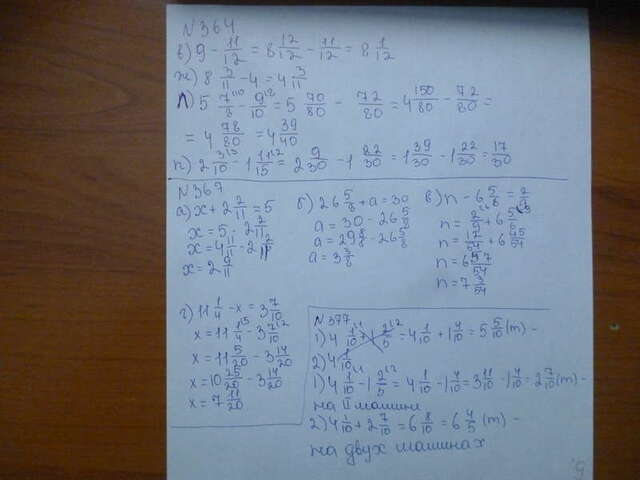 N364
в) 9 - 11/12 = 8 12/12 - 11/12 = 8 1/12
ж) 8 3/11 - 4 = 4 3/11
л) 5 7/8 - 9/10 = 5 70/80 - 72/80 = 4 150/80 - 72/80 =
= 4 78/80 = 4 39/40
п) 2 3/10 - 1 11/15 = 2 9/30 - 1 22/30 = 1 39/30 - 1 22/30 = 17/30
N367
а) x + 2 2/11 = 5
x = 5 - 2 2/11
x = 4 11/11 - 2 2/11
x = 2 9/11
б) 26 5/8 + a = 30
a = 30 - 26 5/8
a = 29 8/8 - 26 5/8
a = 3 3/8
в) n - 6 5/6 = 2/9
n = 2/9 + 6 5/6
n = 12/54 + 6 45/54
n = 6 57/54
n = 7 3/54
г) 11 1/4 - x = 3 7/10
x = 11 1/4 - 3 7/10
x = 11 5/20 - 3 14/20
x = 10 25/20 - 3 14/20
x = 7 11/20
N377
1) 4 1/10 + 1 2/5 = 4 1/10 + 1 4/10 = 5 5/10 (т) -
2) 4 1/10
1) 4 1/10 - 1 2/5 = 4 1/10 - 1 4/10 = 3 11/10 - 1 4/10 = 2 7/10 (т) -
на II машине
2) 4 1/10 + 2 7/10 = 6 8/10 = 6 4/5 (т) -
на двух машинах